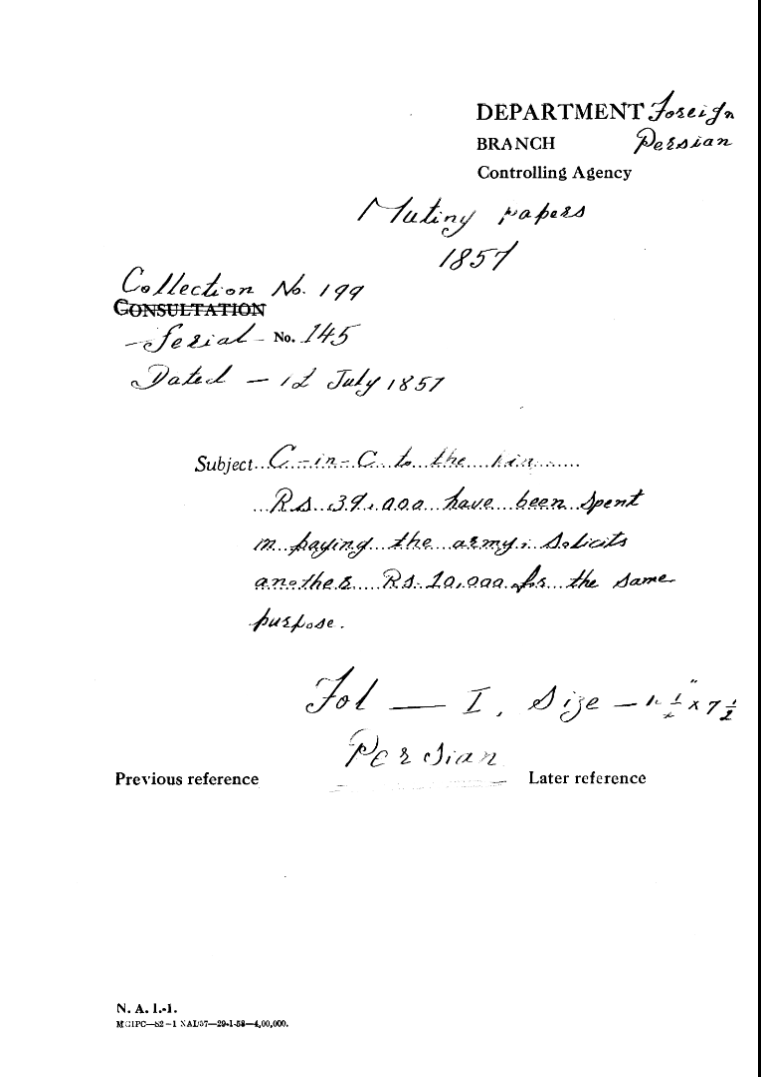 DEPARTMENT Foreign
BRANCH Persian
Controlling Agency
Mutiny papers
1857
Collection No. 199
CONSULTATION
Serial No. 145
Dated — 12 July 1857
Subject C-in-C to the King
Rs. 39,000 have been spent
in paying the army; solicits
another Rs. 10,000 for the same
purpose.
Fol — I, Size — × 7 1/2
Persian
Previous reference Later reference
N. A. I.-1.
MGIPC—S2—1 NAI/57—29-1-58—4,00,000.